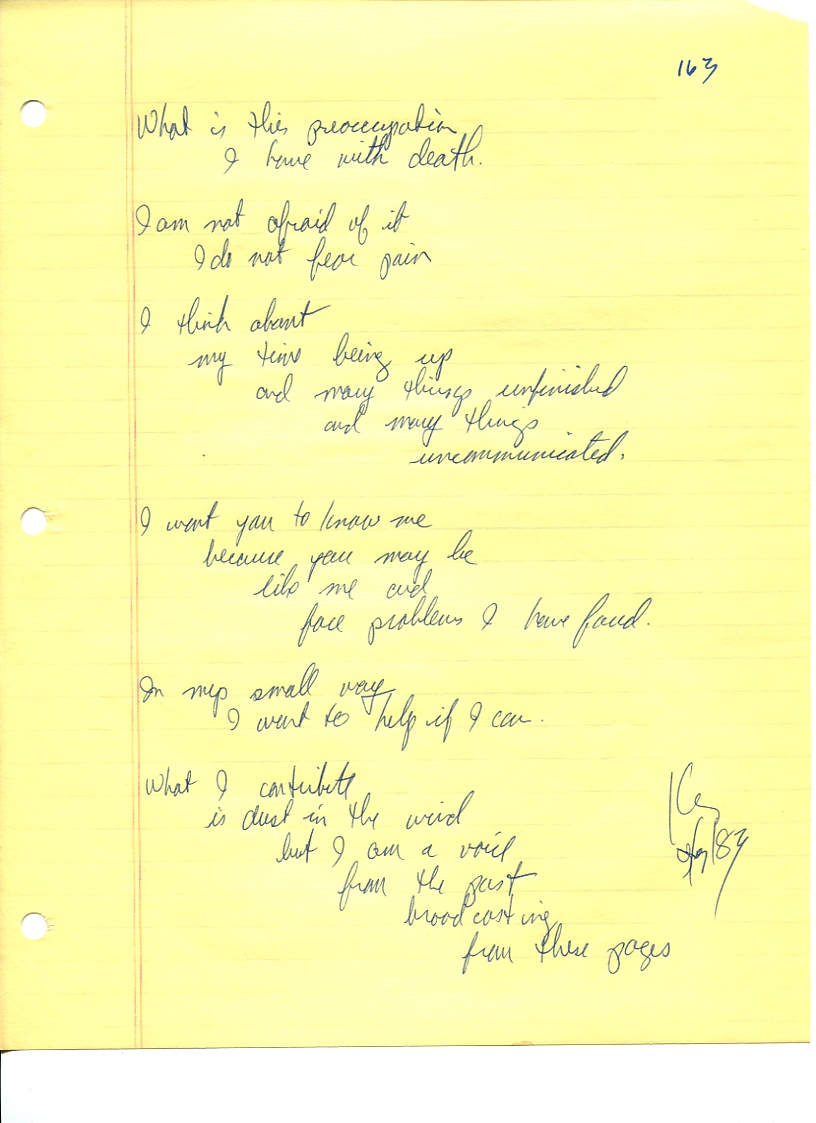 163
What is this preoccupation
I have with death.
I am not afraid of it
I do not fear pain
I think about
my time being up
and many things unfinished
and many things
uncommunicated.
I want you to know me
because you may be
like me and
face problems I have faced.
In my small way
I want to help if I can.
What I contribute
is dust in the wind
but I am a voice
from the past
broadcasting
from these pages